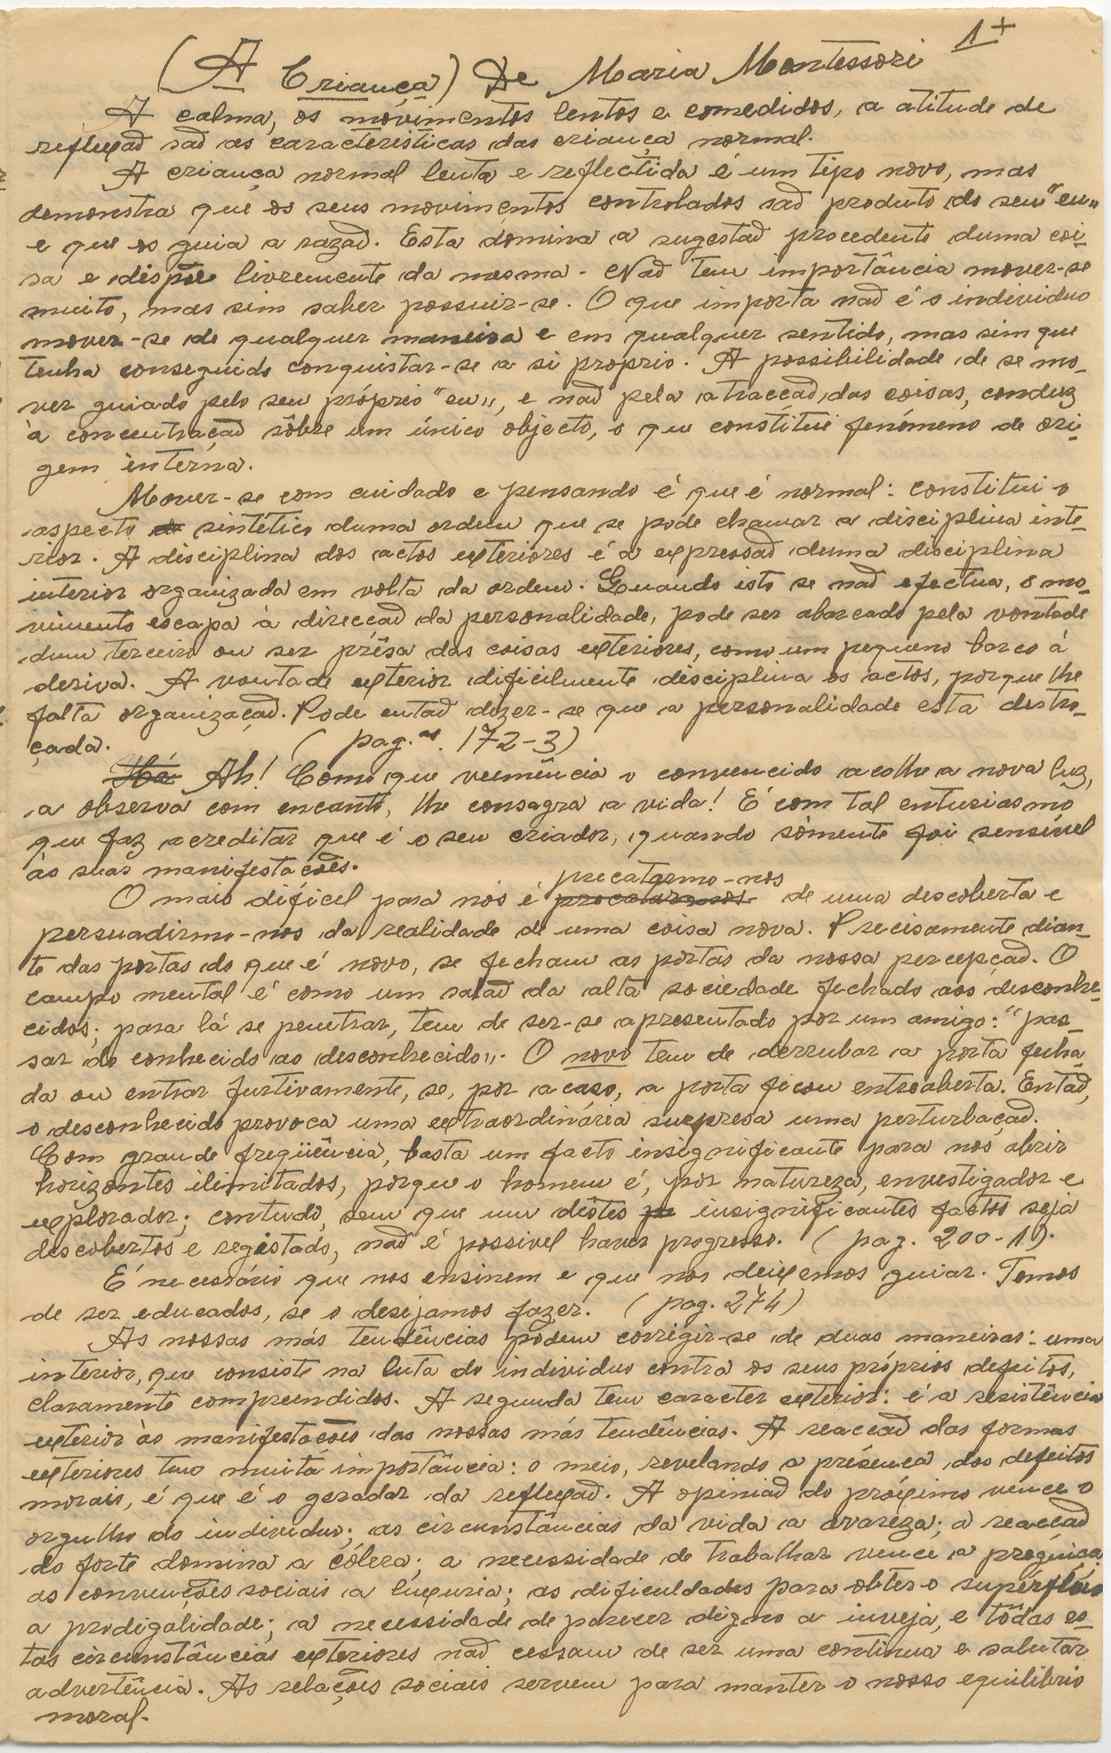 1+
(A Criança) De Maria Montessori
A calma, os movimentos lentos e comedidos, a atitude de
reflexaõ saõ as caracteristicas das criança normal.
A criança normal lenta e reflectida é um tipo novo, mas
demonstra que os seus movimentos controlados saõ produto do seu "eu"
e que os guia a razaõ. Esta domina a sugestaõ procedente duma coi-
sa e dispõe livremente da mesma. Naõ tem importância mover-se
muito, mas sem saber possuir-se. O que importa naõ é o individuo
mover-se de qualquer maneira e em qualquer sentido, mas sim que
tenha conseguido conquistar-se a si proprio. A possibilidade de se mo-
ver guiado pelo seu próprio "eu", e naõ pela atracçaõ das coisas, conduz
à concentraçaõ sôbre um único objecto, o que constitue fenómeno de ori-
gem interna.
Mover-se com cuidado e pensando é que é normal: constitui o
aspecto do sintético duma ordem que se pode chamar a disciplina inte-
rior. A disciplina dos actos exteriores é a expressaõ duma disciplina
interior organizada em volta da ordem. Quando isto se naõ efectua, o mo-
vimento escapa à direcçaõ da personalidade, pode ser abarcado pela vontade
dum terceiro ou ser prêsa das coisas exteriores, como um pequeno barco à
deriva. A vontade exterior dificilmente disciplina os actos, porque lhe
falta organizaçaõ. Pode entaõ dizer-se que a personalidade está destro-
çada. (pag.as. 172-3)
Há Ah! Como que veemência o convencido acolhe a nova luz,
a observa com encanto, lhe consagra a vida! É com tal entusiasmo
que faz acreditar que é o seu criador, quando sòmente foi sensível
às suas manifestações.
precatarmo-nos
O mais difícel para nós é procatarmos de uma descoberta e
persuadirmo-nos da realidade de uma coisa nova. Precisamente dian-
te das portas do que é novo, se fecham as portas da nossa percepçaõ. O
campo mental é como um salaõ da alta sociedade fechado aos desconhe-
cidos; para lá se penetrar, tem de ser-se apresentado por um amigo: "pas-
sar do conhecido ao desconhecido". O novo tem de derrubar a porta fecha-
da ou entrar furtivamente, se, por acaso, a porta ficou entreaberta. Entaõ,
o desconhecido provoca uma extraordinária surpresa uma perturbaçaõ.
Com grande freqüência, basta um facto insignificante para nos abrir
horizontes ilimitados, porque o homem é, por natureza, envestigador e
explorador; contudo, sem que um dêstes insignificantes factos seja
descobertos e registado, naõ é possivel haver progresso. (pag. 200-1).
É necessário que nos ensinem e que nos deixemos guiar. Temos
de ser educados, se o desejamos fazer. (pag. 274)
As nossas más tendências podem corrigir-se de duas maneiras: uma
interior, que consiste na luta do individuo contra os seus próprios defeitos,
claramente compreendidos. A segunda tem caracter exterior: é a resistência
exterior às manifestações das nossas más tendências. A reacçaõ das formas
exteriores tem muita importância: o meio, revelando a présença dos defeitos
morais, é que é o gerador da reflexaõ. A opiniaõ do próximo vence o
orgulho do individuo; as circunstâncias da vida a avaréza; a reacçaõ
do forte domina a cólera; a necessidade de trabalhar vence a preguiça
as convenções sociais a luxuria; as dificuldades para obter o supérfluo
a prodigalidade; a necessidade de parecer digno a inveja, e tôdas es-
tas circunstâncias exteriores naõ cessam de ser uma contínua e salutar
advertência. As relações sociais servem para manter o nosso equilibrio
moral.